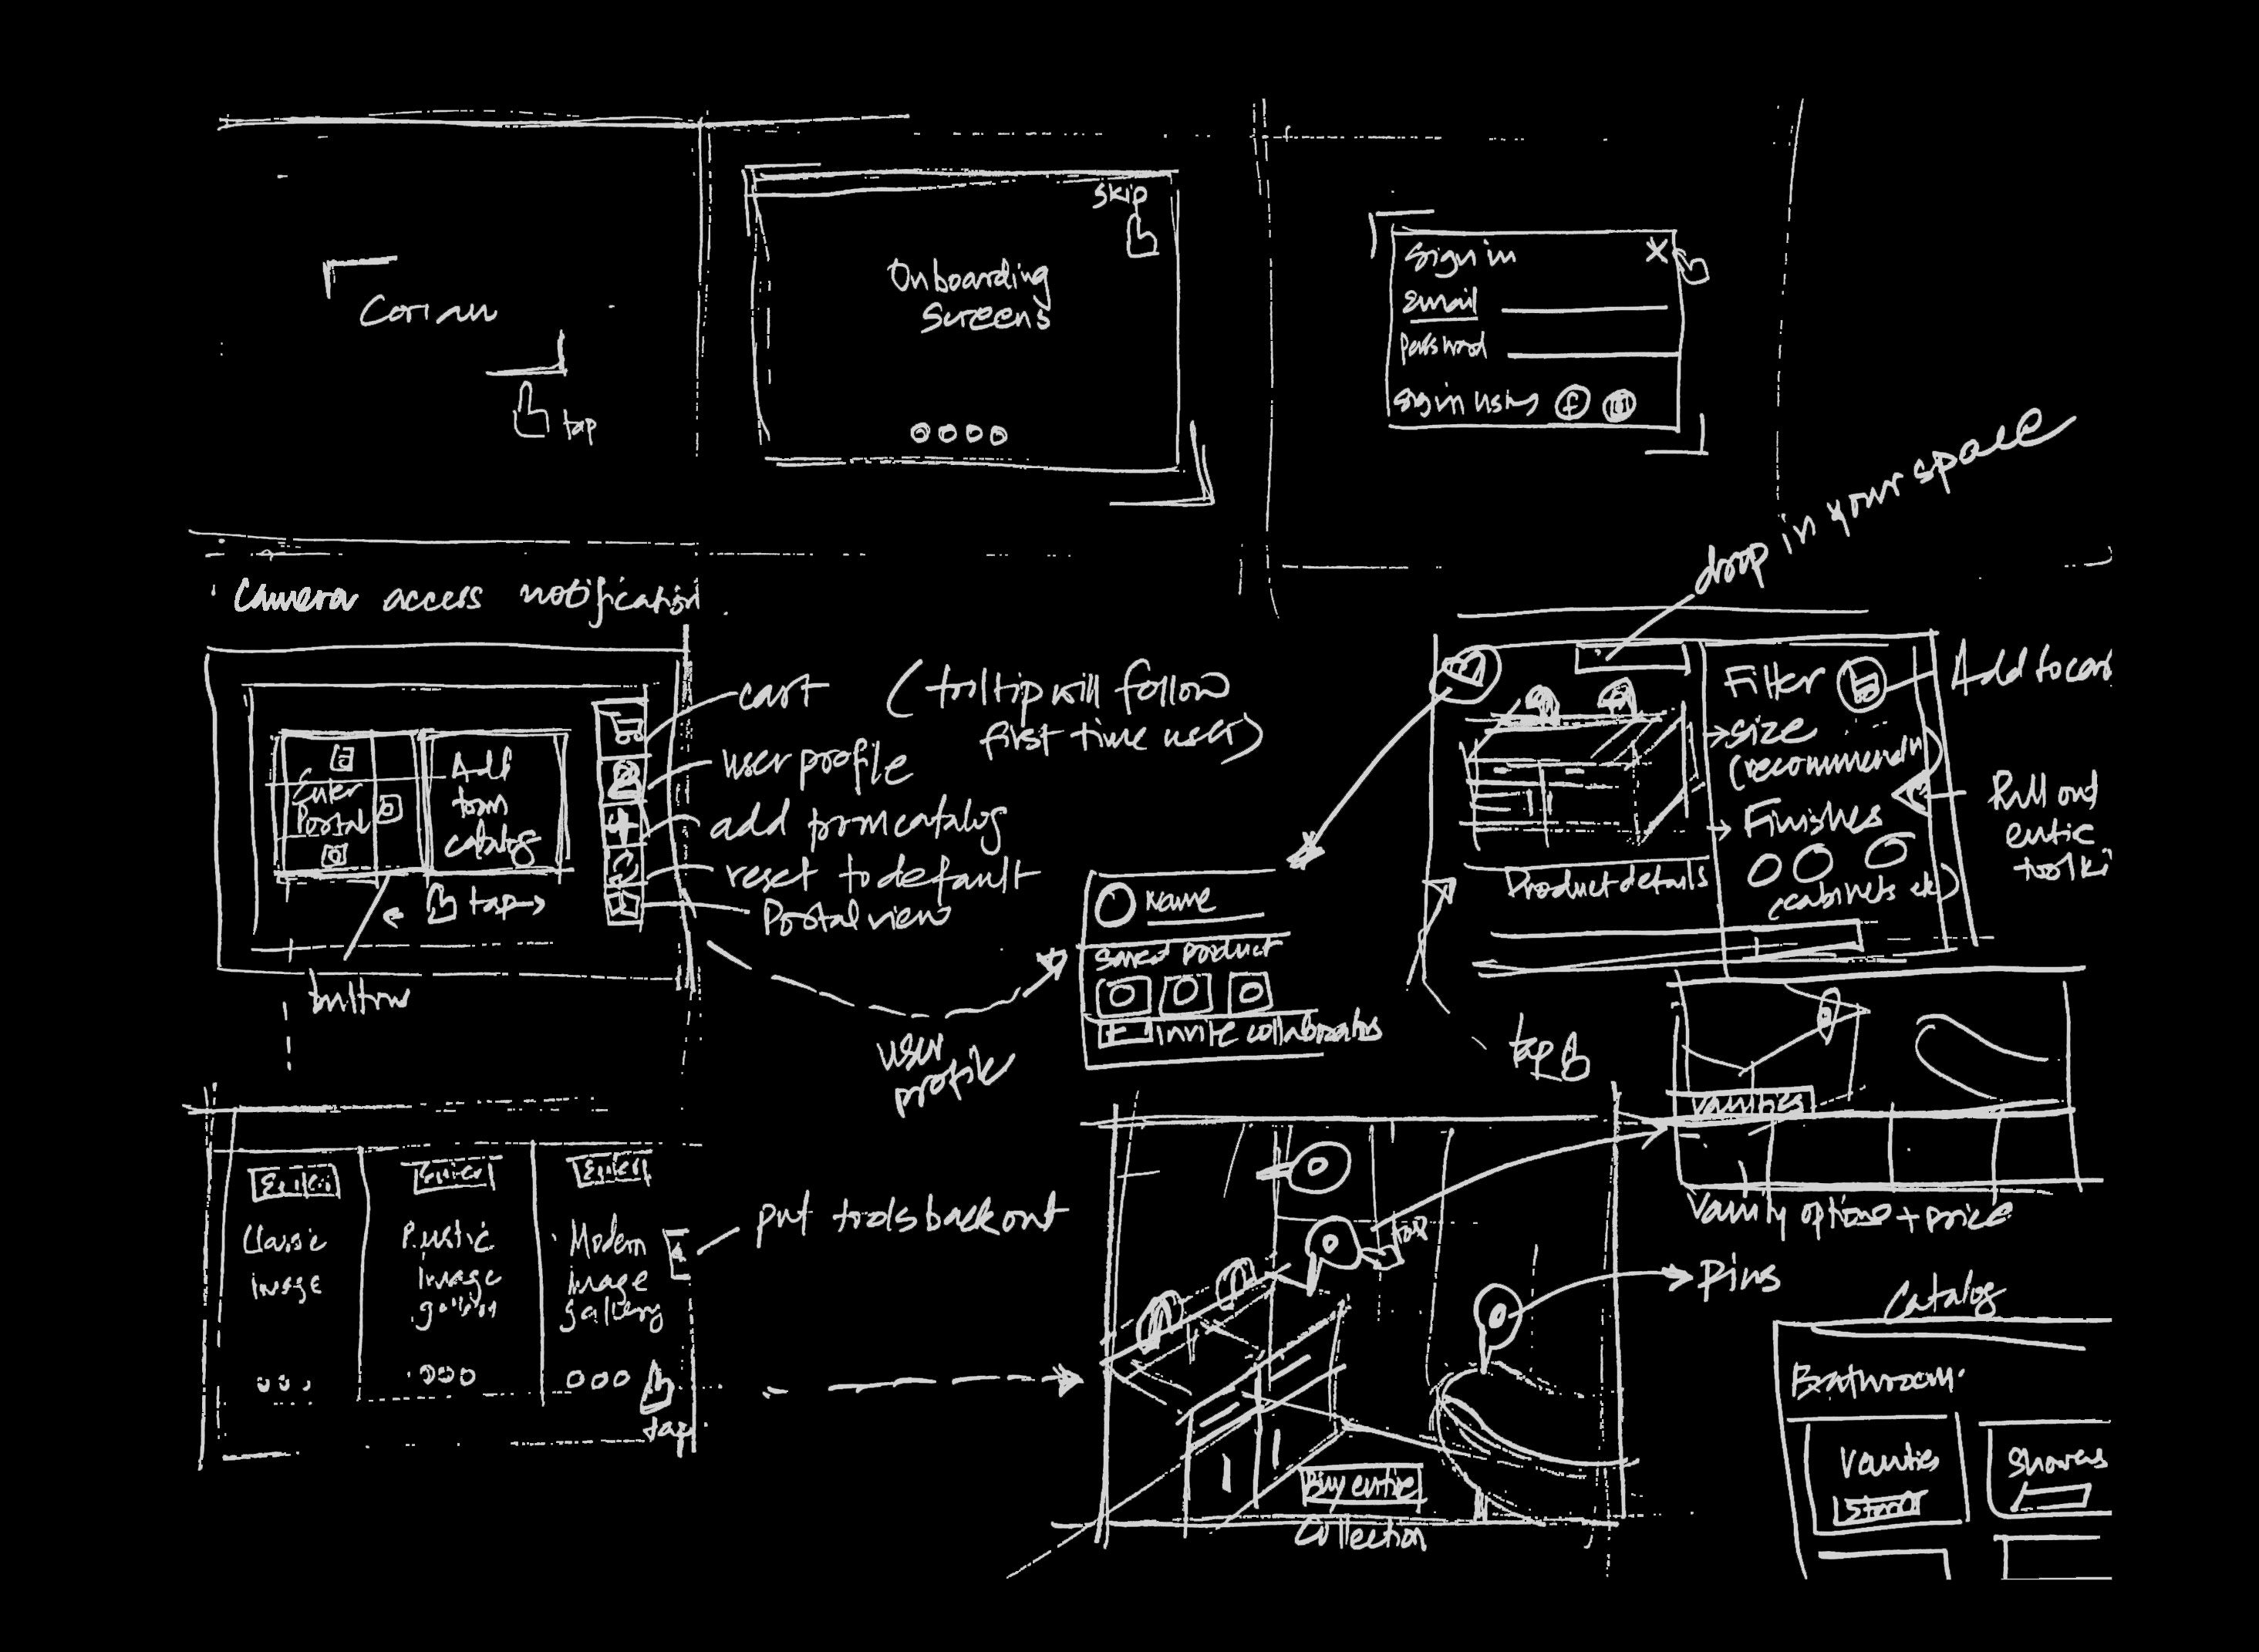 Corian
tap
Skip
Onboarding
Screens
Sign in
X
Email
Password
Sign in using f
drop in your space
Camera access notification
cart
(tooltip will follow
first time user)
user profile
add from catalog
reset to default
Portal view
Enter
Portal
Add
from
catalog
tap
button
user
profile
Name
Saved product
Invite collaborators
Filter
size
(recommendn)
Finishes
(cabinets etc)
Product details
Add to car
Pull out
entire
toolki
tap
Vanities
Vanity options + price
Enter
Classic
Image
Enter
Rustic
Image
gallery
Enter
Modern
Image
gallery
tap
put tools back out
tap
Pins
Buy entire
Collection
Catalog
Bathroom
Vanities
Store
Showers